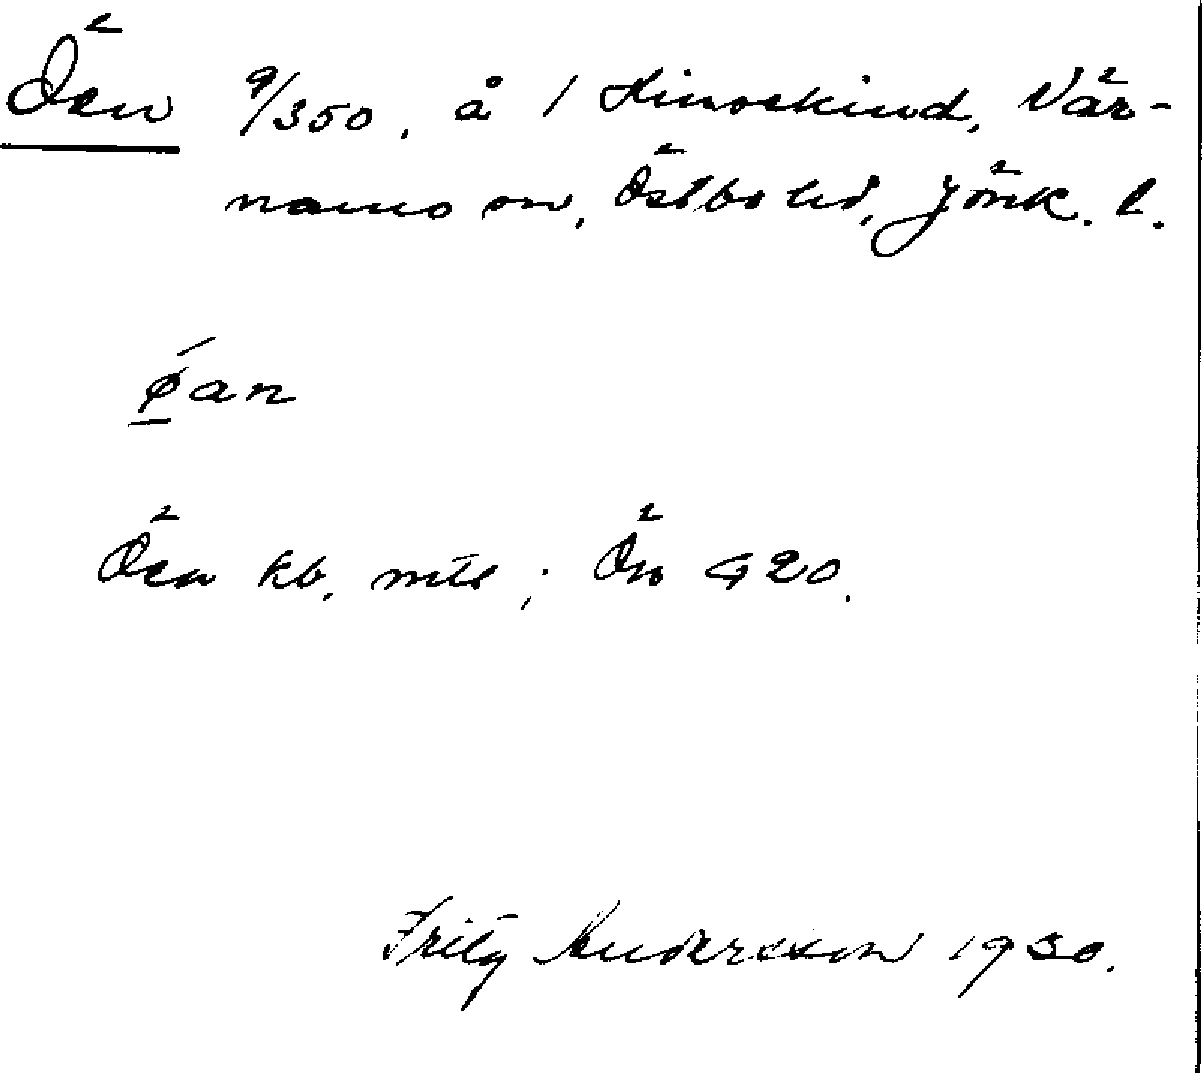 Öen 9/350, å 1 Hinsekind, Vär-
namo sn, Östbo hd, Jönk. l.
ǿan
Öen kb. mtl ; Ön G20.
Fritz Andersson 1930.